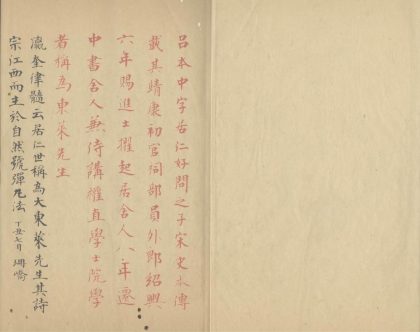 吕本中字居仁好問之子宋史本傳
載其靖康初官祠部員外郎紹興
六年賜進士擢起居舍人八年遷
中書舍人兼侍講權直學士院學
者稱為東萊先生
瀛奎律髓云居仁世稱為大東萊先生其詩
宗江西而主於自然號彈丸法 丁丑七月